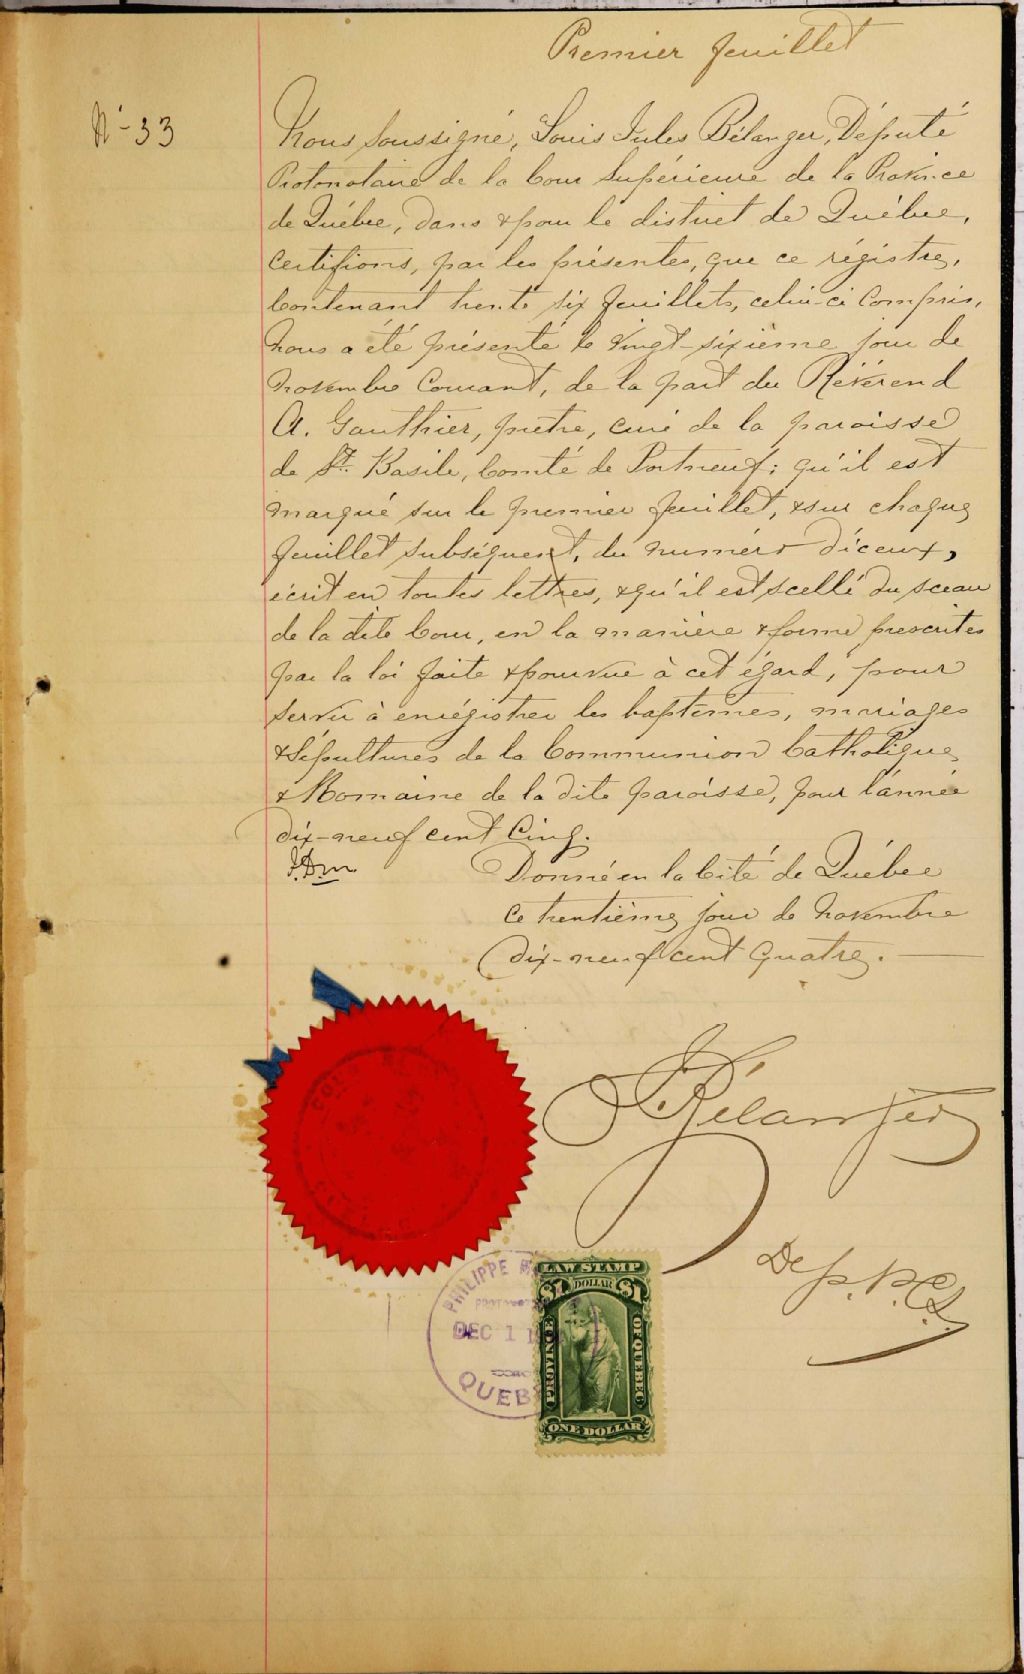 Premier feuillet
No - 33
Nous soussigné, Louis Jules Bélanger, Député
Protonotaire de la Cour Supérieure de la Province
de Québec, dans & pour le district de Québec,
certifions, par les présentes, que ce régistre,
Contenant trente six feuillets, celui-ci compris,
Nous a été présenté le vingt-sixième jour de
novembre Courant, de la part du Révérend
A. Gauthier, prêtre, curé de la paroisse
de St. Basile, Comté de Portneuf; qu'il est
marqué sur le premier feuillet, & sur chaque
feuillet subséquent, du numéro d'iceux,
écrit en toutes lettres, & qu'il est scellé du sceau
de la dite Cour, en la manière & forme prescrites
par la loi faite & pourvue à cet égard, pour
servir à enrégistrer les baptêmes, mariages
& Sépultures de la Communion Catholique
& Romaine de la dite paroisse, pour l'année
dix-neuf cent Cinq.
Donné en la Cité de Québec
ce trentième jour de novembre
dix-neuf cent quatre.
Bélanger
Dep. P. C. S.
PHILIPPE
DEC 1
QUEB
LAW STAMP
$1 DOLLAR $1
PROVINCE OF QUEBEC
ONE DOLLAR